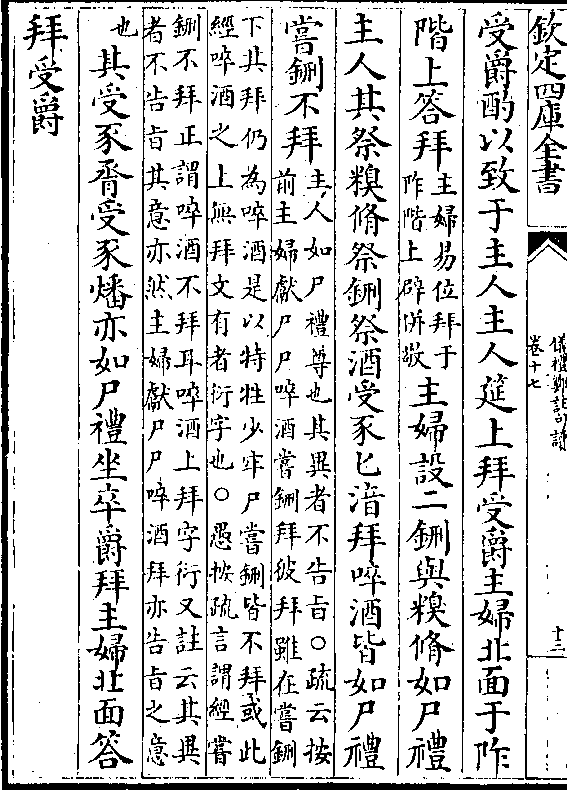 欽定四庫全書
儀禮鄭註句讀
卷十七
十二
受爵酌以致于主人主人筵上拜受爵主婦北面于阼
階上答拜
主婦易位拜于
阼階上辟併敬
主婦設二鉶與糗脩如尸禮
主人其祭糗脩祭鉶祭酒受豕匕湆拜啐酒皆如尸禮
嘗鉶不拜
主人如尸禮尊也其異者不告旨○疏云按
前主婦獻尸尸啐酒嘗鉶拜彼拜雖在嘗鉶
下其拜仍為啐酒是以特牲少牢尸嘗鉶皆不拜或此
經啐酒之上無拜文有者衍字也○愚按疏言謂經嘗
鉶不拜正謂啐酒不拜耳啐酒上拜字衍又註云其異
者不告旨其意亦然主婦獻尸尸啐酒拜亦告旨之意
也
其受豕脀受豕燔亦如尸禮坐卒爵拜主婦北面答
拜受爵